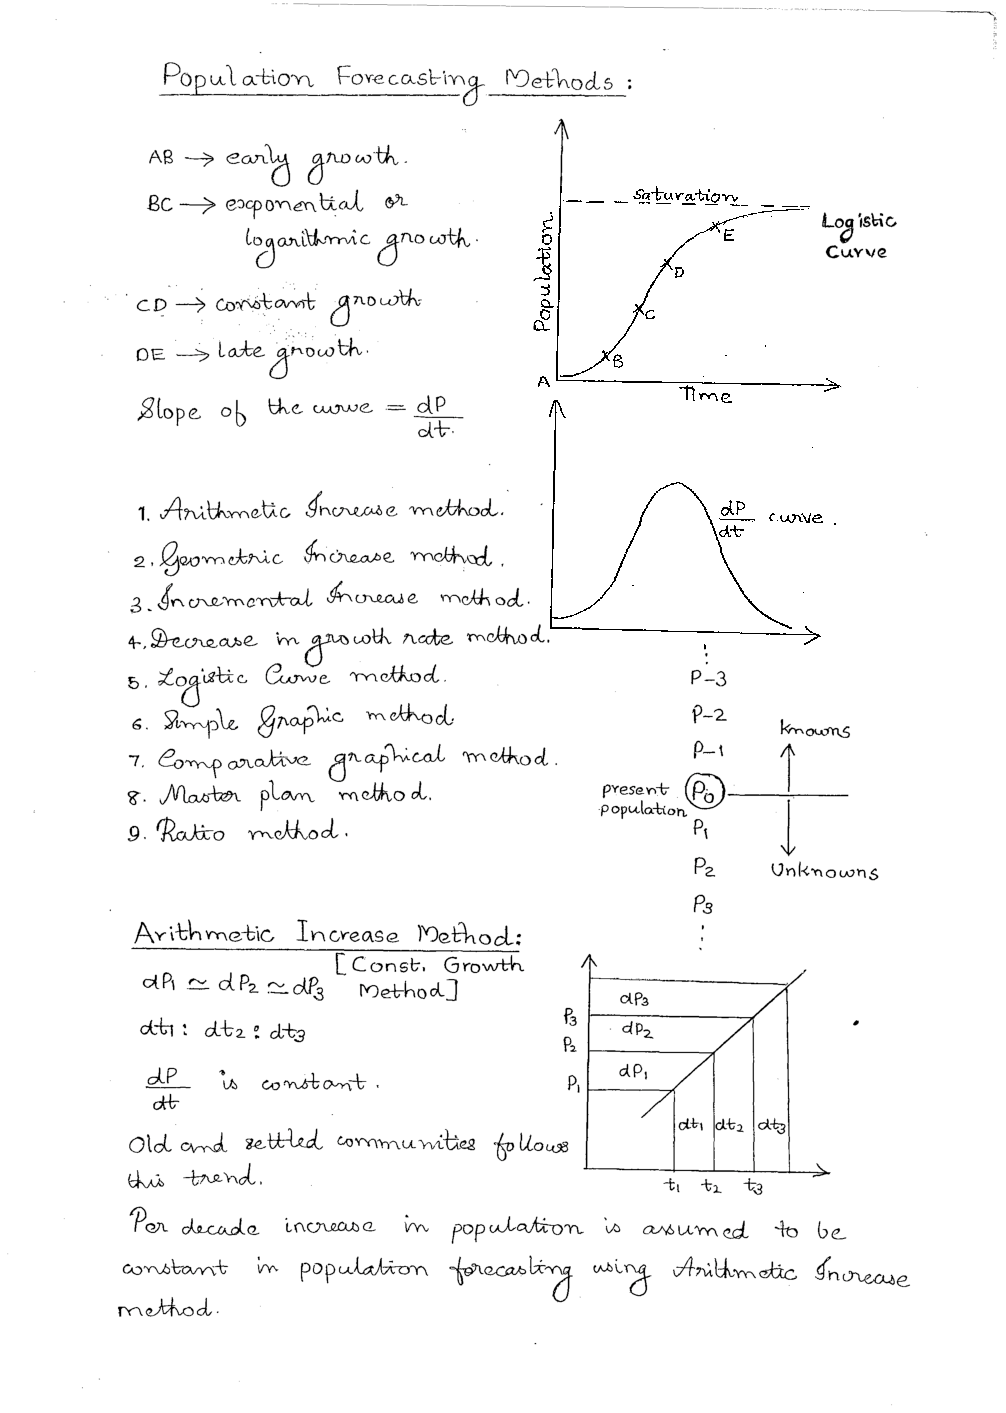 Population Forecasting Methods :
AB → early growth.
BC → exponential or
logarithmic growth.
CD → constant growth
DE → late growth.
Slope of the curve = dP/dt.
Population
Saturation
Logistic
Curve
E
D
C
B
A
Time
dP/dt curve.
1. Arithmetic Increase method.
2. Geometric Increase method.
3. Incremental Increase method.
4. Decrease in growth rate method.
5. Logistic Curve method.
6. Simple Graphic method
7. Comparative graphical method.
8. Master plan method.
9. Ratio method.
P-3
P-2
P-1
present
population
P0
P1
P2
P3
Knowns
Unknowns
Arithmetic Increase Method:
[Const. Growth
Method]
dP1 ≃ dP2 ≃ dP3
dt1 : dt2 : dt3
dP/dt is constant.
Old and settled communities follows
this trend.
P3
P2
P1
dP3
dP2
dP1
dt1 dt2 dt3
t1 t2 t3
Per decade increase in population is assumed to be
constant in population forecasting using Arithmetic Increase
method.